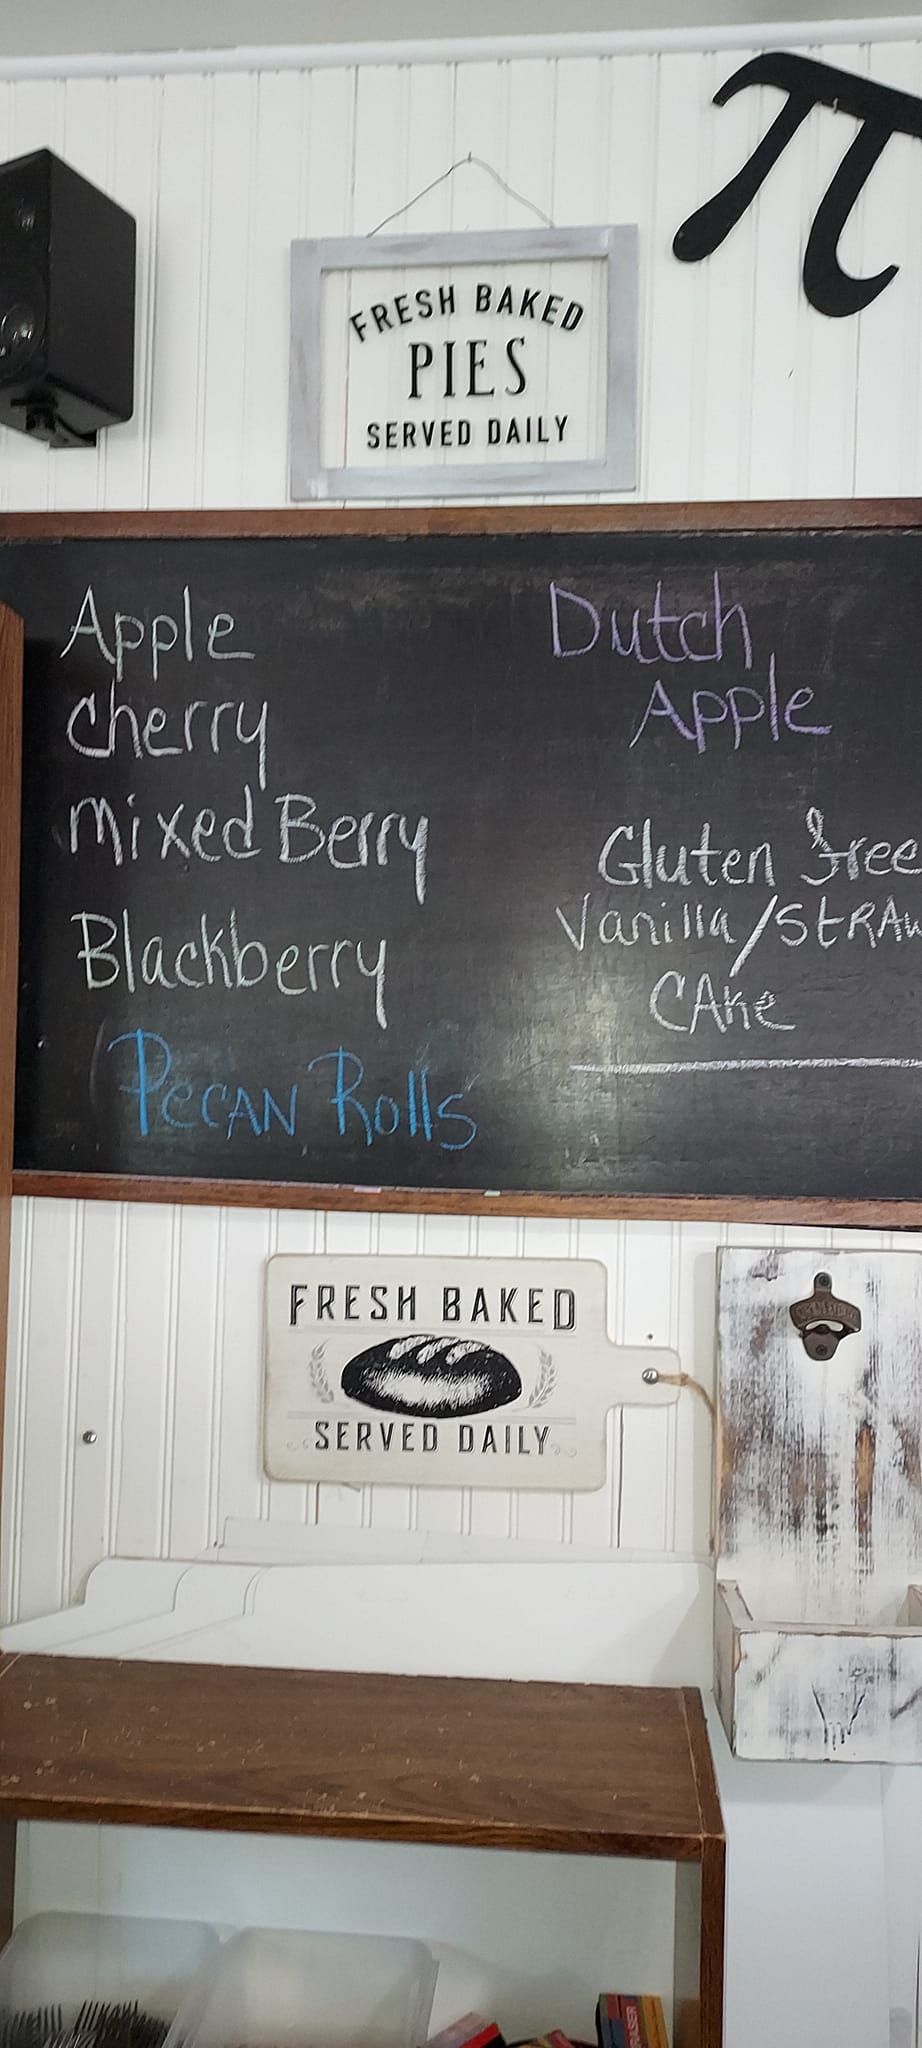 π
FRESH BAKED
PIES
SERVED DAILY
Apple
Cherry
Mixed Berry
Blackberry
Pecan Rolls
Dutch
Apple
Gluten free
Vanilla/StRAw
CAke
FRESH BAKED
SERVED DAILY